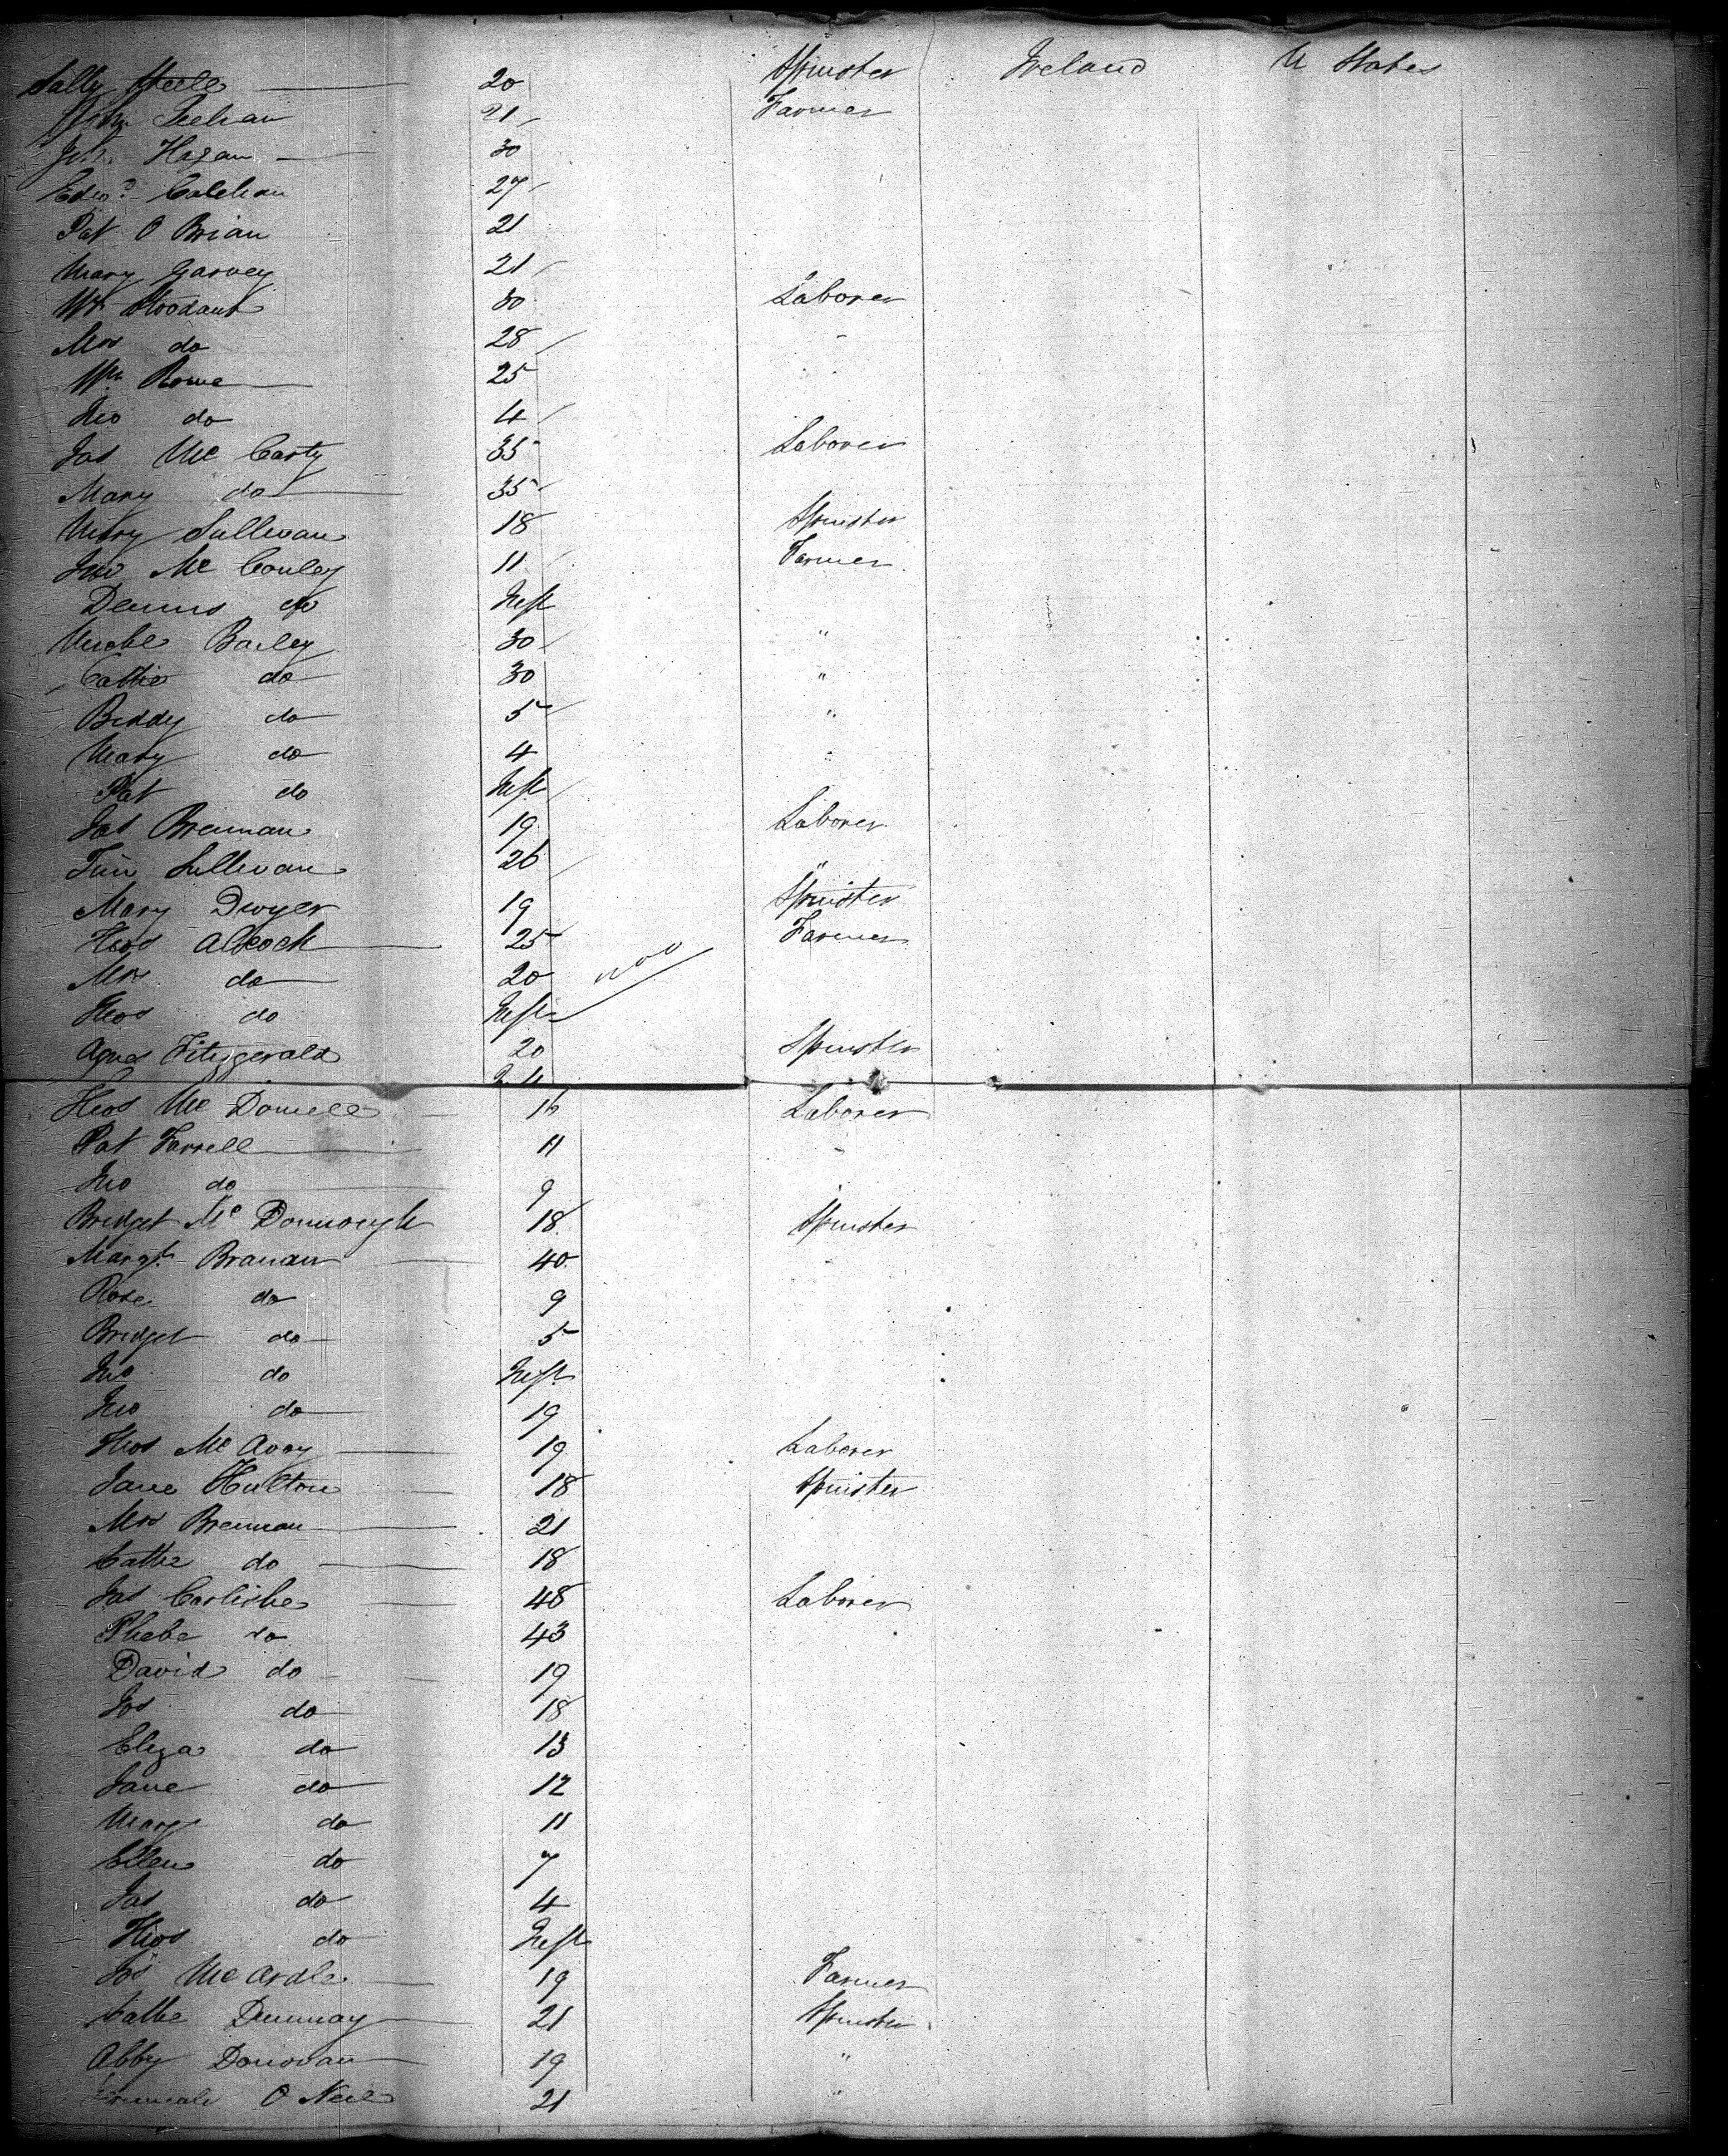 Sally Steele 20 Spinster Ireland U States
John Teehan 21 Farmer
Jno Hagan 30
Edwd Calehan 27
Pat O Brian 21
Mary Garvey 21
Wm 30 Laborer
Mrs do 28 "
Wm Rowe 25 "
Jno do 4
Jas Mc Carty 35 Laborer
Mary do 35
Mary Sullivan 18 Spinster
Jno Mc Conley 11 Farmer
Dennis do Inft
Michl Bailey 30 "
Cathe do 30 "
Biddy do 5 "
Mary do 4 "
Pat do Inft
Jas Brennan 19 Laborer
Tim Sullivan 26 "
Mary Dwyer 19 Spinster
Thos Alcock 25 Farmer
Mrs do 20
Thos do Inft
Agnes Fitzgerald 20 Spinster
Thos Mc Donnell 16 Laborer
Pat Farrell 11 "
Jno do 9 "
Bridget Mc Donnough 18 Spinster
Margt Branan 40 "
Rose do 9
Bridget do 5
Jno do Inft
Jno do 19
Thos Mc Avoy 19 Laborer
Jane Hulton 18 Spinster
Mrs Brennan 21
Cathe do 18
Jas Carlishe 48 Laborer
Phebe do 43
David do 19
Jos do 18
Eliza do 13
Jane do 12
Mary do 11
Ellen do 7
Jas do 4
Thos do Inft
Jos Mc Ardle 19 Farmer
Cathe Dunnay 21 Spinster
Abby Donovan 19 "
O Neil 21 "